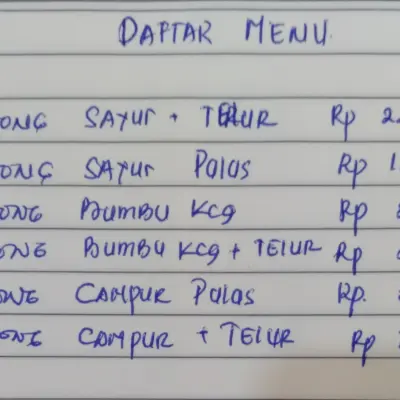 DAFTAR MENU.
ONG SAYUR + TELUR Rp 2
ONG SAYUR POLOS Rp 1
ONG BUMBU KCG Rp
ONG BUMBU KCG + TELUR Rp
ONG CAMPUR POLOS Rp.
ONG CAMPUR + TELUR Rp